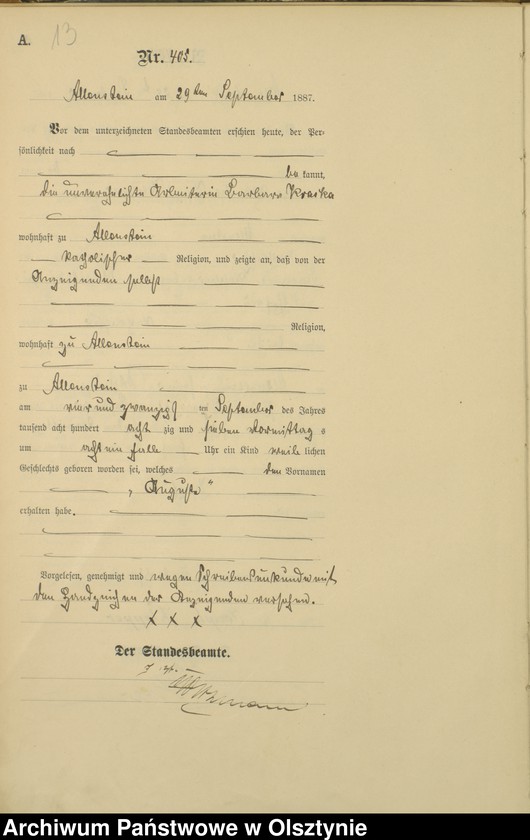 A. 13
Nr. 405.
Allenstein am 29ten September 1887.
Vor dem unterzeichneten Standesbeamten erschien heute, der Per-
sönlichkeit nach
be kannt,
die unverehelichte Arbeiterin Barbara Kraska
wohnhaft zu Allenstein
katholischer Religion, und zeigte an, daß von der
Anzeigenden selbst
Religion,
wohnhaft zu Allenstein
zu Allenstein
am vier und zwanzigsten September des Jahres
tausend acht hundert acht zig und sieben Vormittag s
um acht ein halb Uhr ein Kind weib lichen
Geschlechts geboren worden sei, welches den Vornamen
„Auguste“
erhalten habe.
Vorgelesen, genehmigt und wegen Schreibensunkunde mit
den Handzeichen der Anzeigenden versehen.
x x x
Der Standesbeamte.
Archiwum Państwowe w Olsztynie